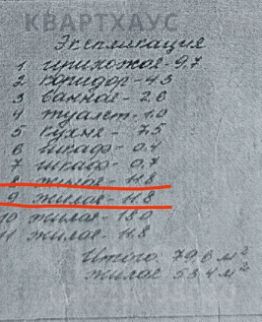 КВАРТХАУС
Экспликация
1 прихожая - 9,7
2 коридор - 4.3
3 ванная - 2.8
4 туалет - 1.0
5 кухня - 7.5
6 шкаф - 0.4
7 шкаф - 0,7
8 жилая - 11.8
9 жилая - 11.8
10 жилая - 18.0
11 жилая - 11.8
Итого 79,8 м²
жилая 53.4 м²